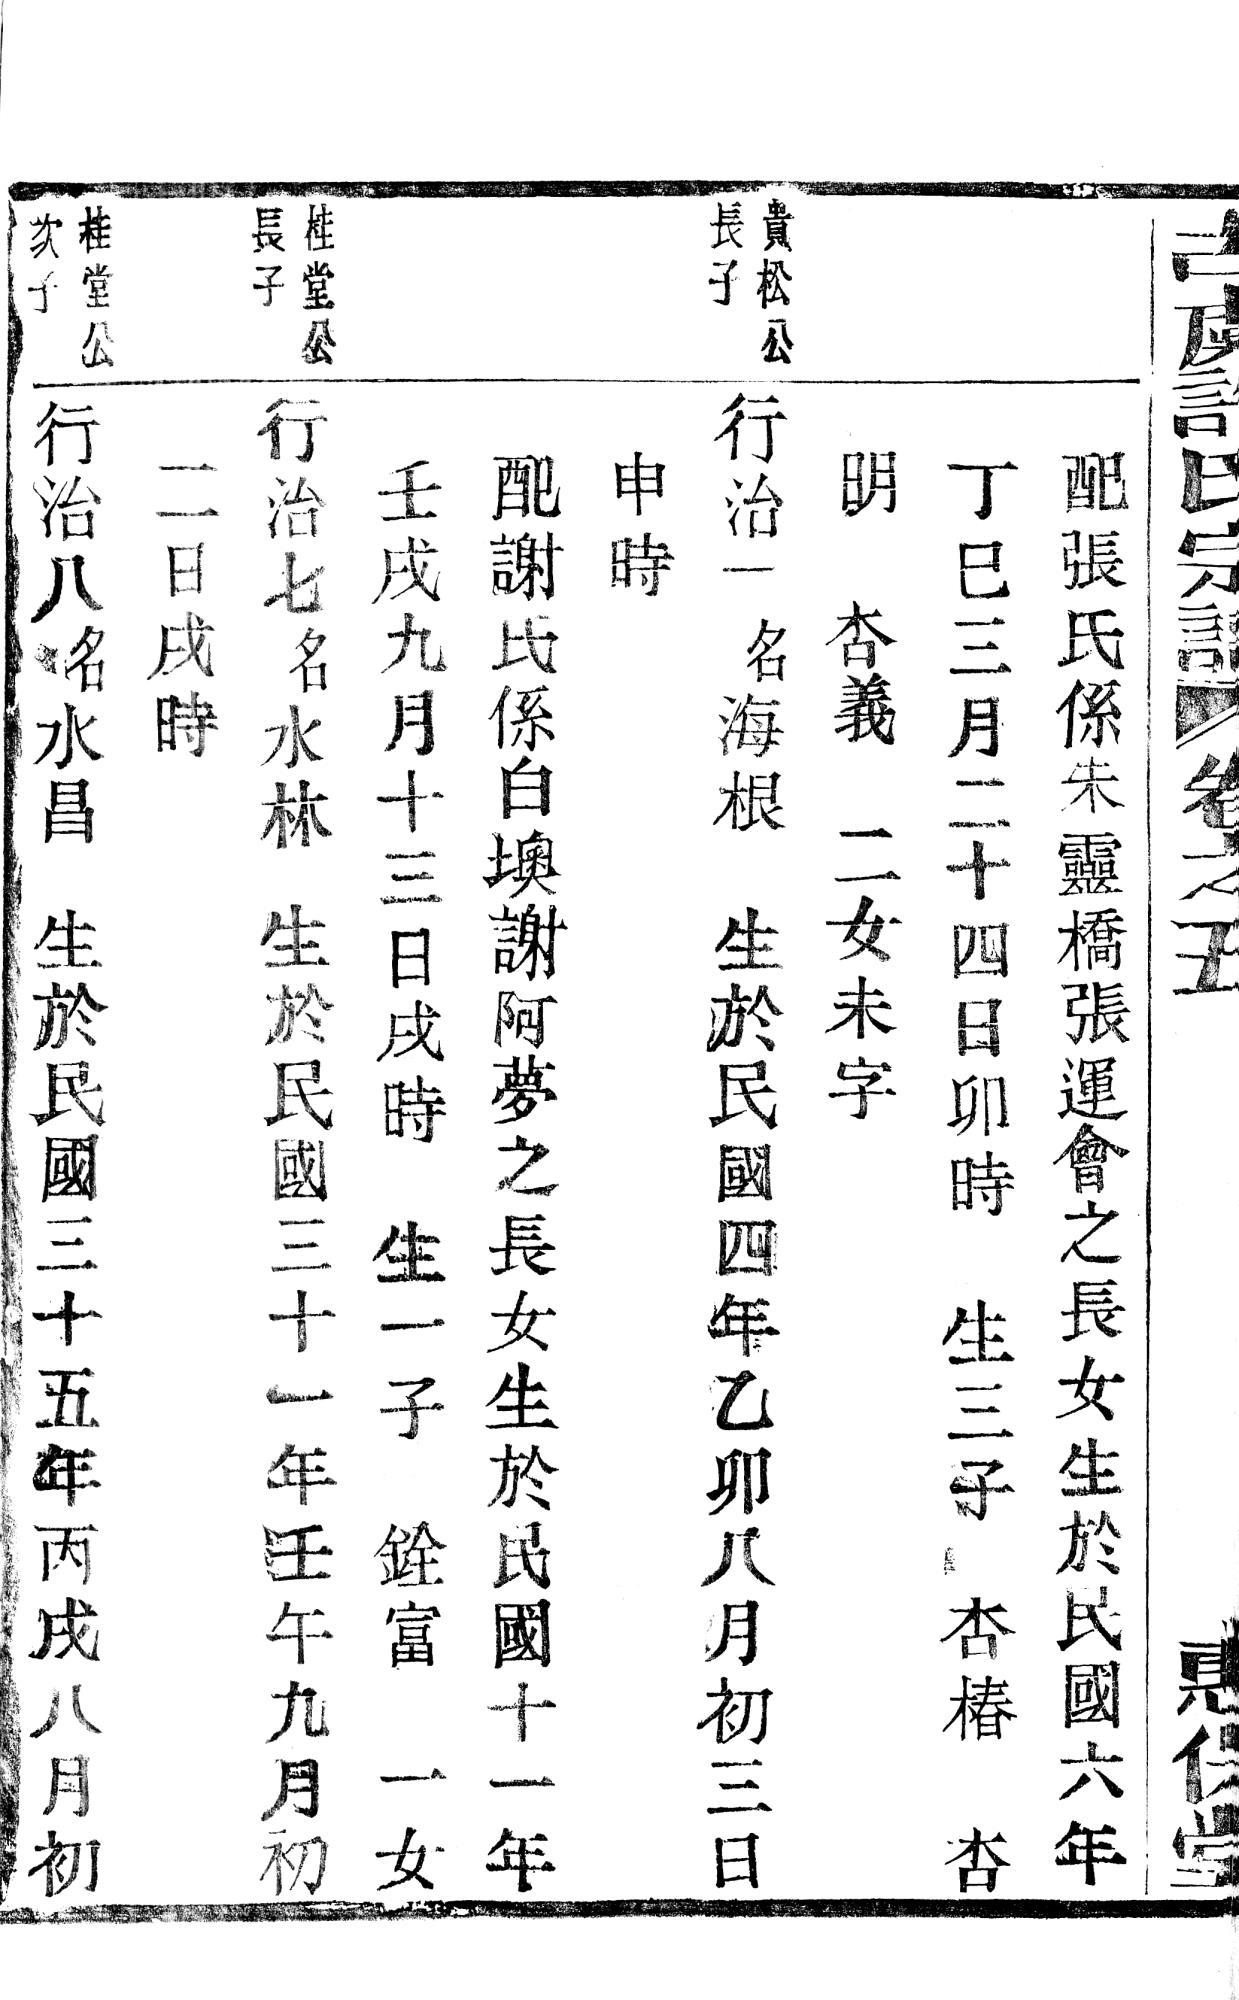 氏宗譜 卷之五
配張氏係朱靈橋張運會之長女生於民國六年
丁巳三月二十四日卯時 生三子 杏椿 杏
明 杏義 二女未字
貴松公
長子
行治一 名海根 生於民國四年乙卯八月初三日
申時
配謝氏係白墺謝阿夢之長女生於民國十一年
壬戌九月十三日戌時 生一子 銓富 一女
桂堂公
長子
行治七名水林 生於民國三十一年壬午九月初
二日戌時
桂堂公
次子
行治八名水昌 生於民國三十五年丙戌八月初